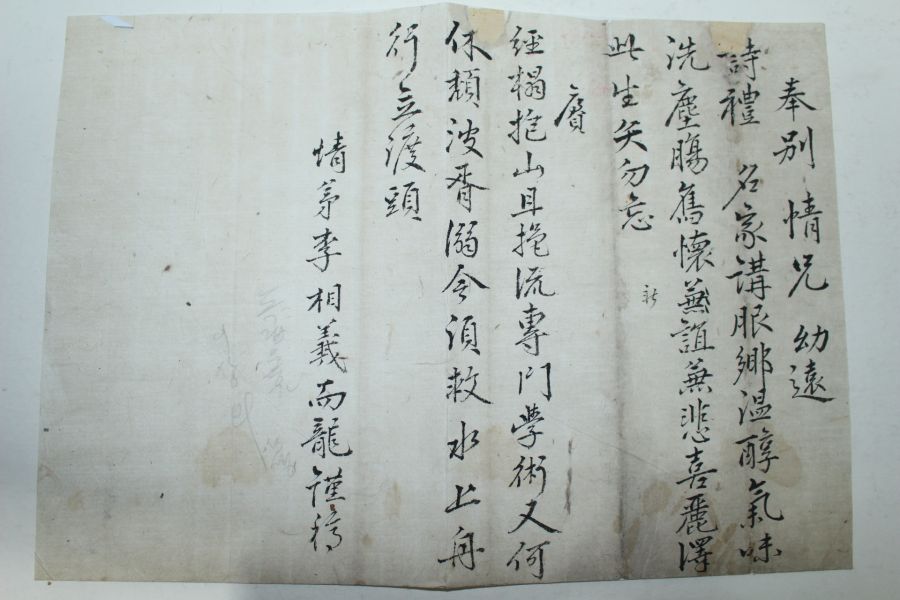 奉別 情兄 幼遠
詩禮 名家講服鄉溫醇氣味
洗塵腸舊懷兼誼兼悲喜麗澤
新
此生矢勿忘
賡
經榻抱山耳挽流專門學術又何
休頹波胥溺今須救水上舟
行立渡頭
情弟李相義雨龍謹稿